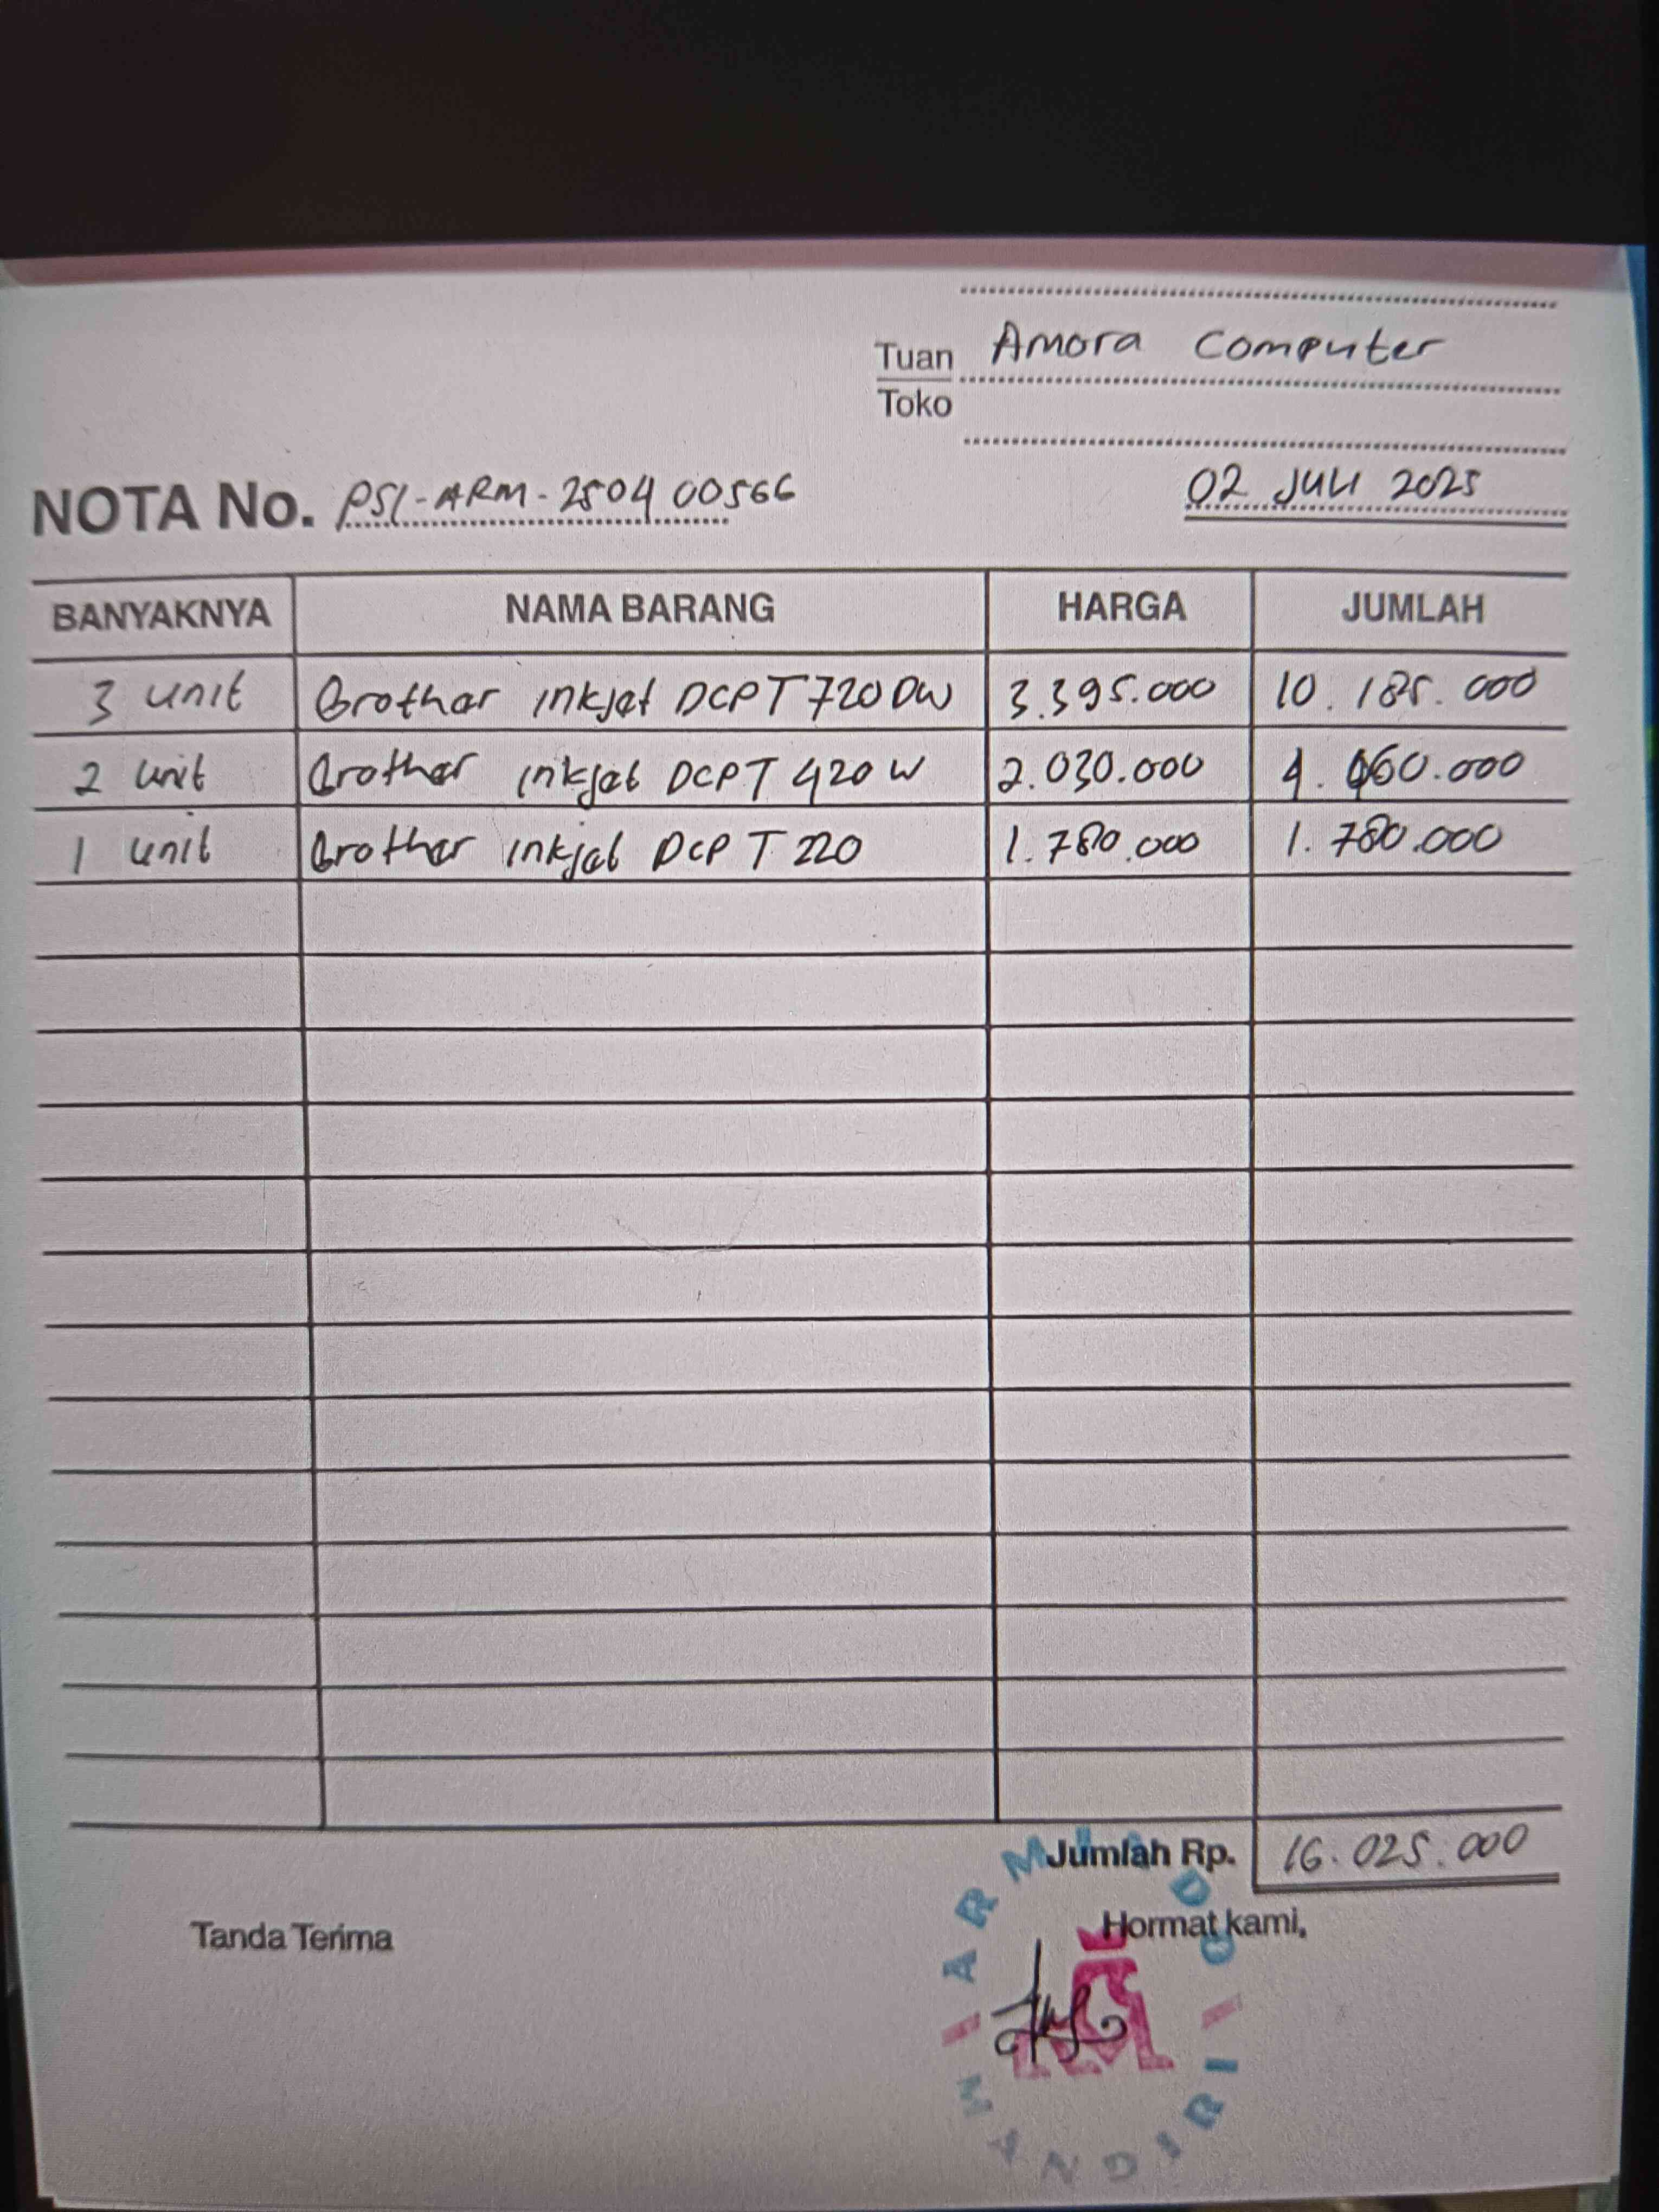 Tuan Amora Computer
Toko
NOTA No. PSI-ARM-2504 00566 02 JULI 2025
BANYAKNYA NAMA BARANG HARGA JUMLAH
3 unit Brother inkjet DCPT 720 DW 3.395.000 10.185.000
2 unit Brother inkjet DCPT 420 W 2.030.000 4.060.000
1 unit Brother inkjet DCP T 220 1.780.000 1.780.000
Jumlah Rp. 16.025.000
Tanda Terima Hormat kami,
MANDIRI